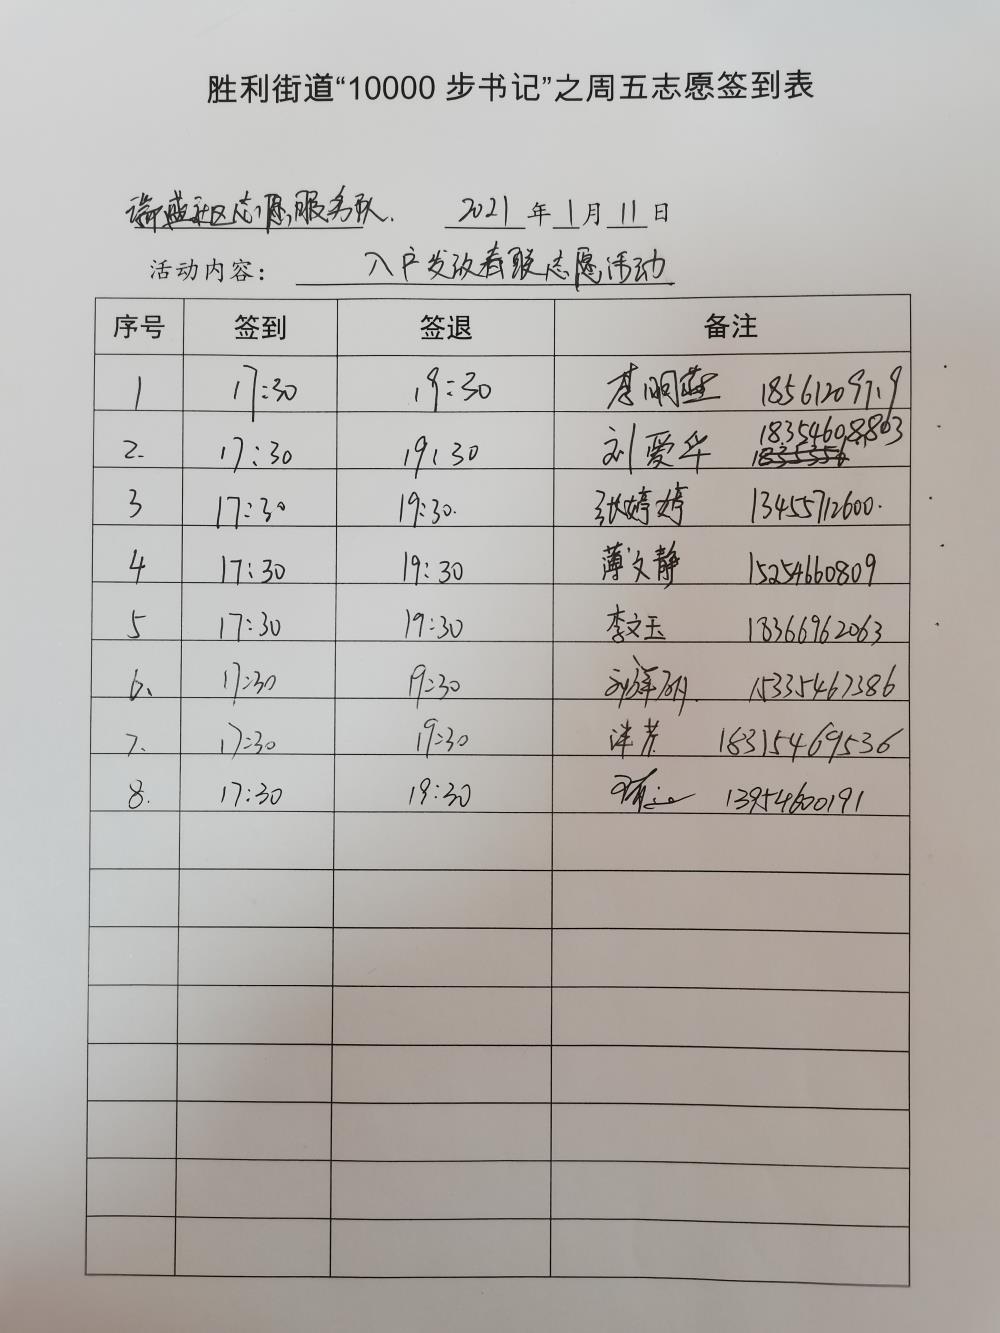 胜利街道“10000 步书记”之周五志愿签到表
社区志愿服务队 2021 年 1 月 11 日
活动内容: 入户发放春联志愿活动
序号 签到 签退 备注
1 17:30 19:30 李明燕
2. 17:30 19:30 刘爱华 18354608803
3 17:30 19:30. 张婷婷 13455712600.
4 17:30 19:30 薄文静 15254660809
5 17:30 19:30 李文玉 18366962063
6. 17:30 19:30 15335467386
7. 17:30 19:30 18315469536
8. 17:30 19:30 13954600191